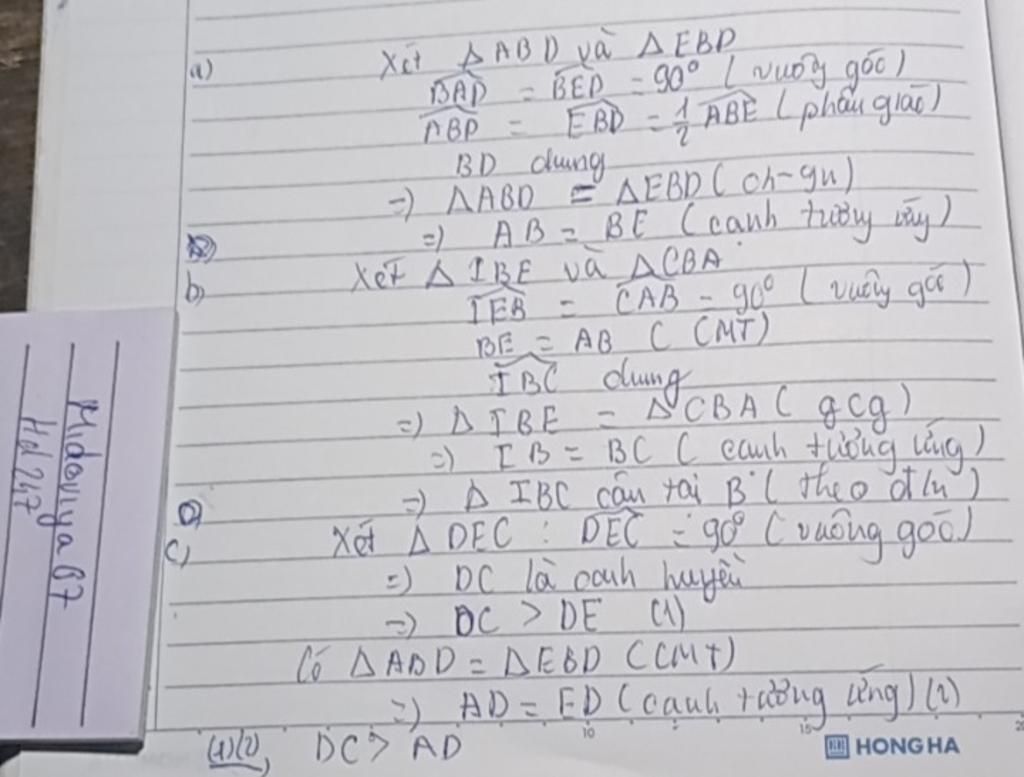 a) Xét ΔABD và ΔEBD
BAD = BED = 90° (vuông góc)
ABD = EBD = 1/2 ABE (phân giác)
BD chung
=> ΔABD = ΔEBD (ch-gn)
=> AB = BE (cạnh tương ứng)
b) Xét ΔIBE và ΔCBA
IEB = CAB = 90° (vuông góc)
BE = AB (CMT)
IBC chung
=> ΔIBE = ΔCBA (gcg)
=> IB = BC (cạnh tương ứng)
=> Δ IBC cân tại B (theo đ/n)
c) Xét ΔDEC : DEC = 90° (vuông góc)
=> DC là cạnh huyền
=> DC > DE (1)
Có ΔABD = ΔEBD (CMT)
=> AD = ED (cạnh tương ứng) (2)
(1)(2), DC > AD
10 15 20
HONG HA
Midoriya 67
Hd 247